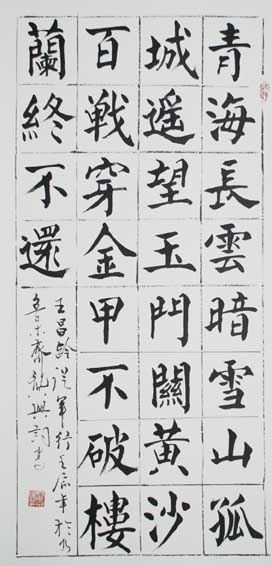 青海長雲暗雪山孤
城遥望玉門關黃沙
百戦穿金甲不破樓
蘭終不還
王昌龄從軍行壬辰年於乌
鲁木齊